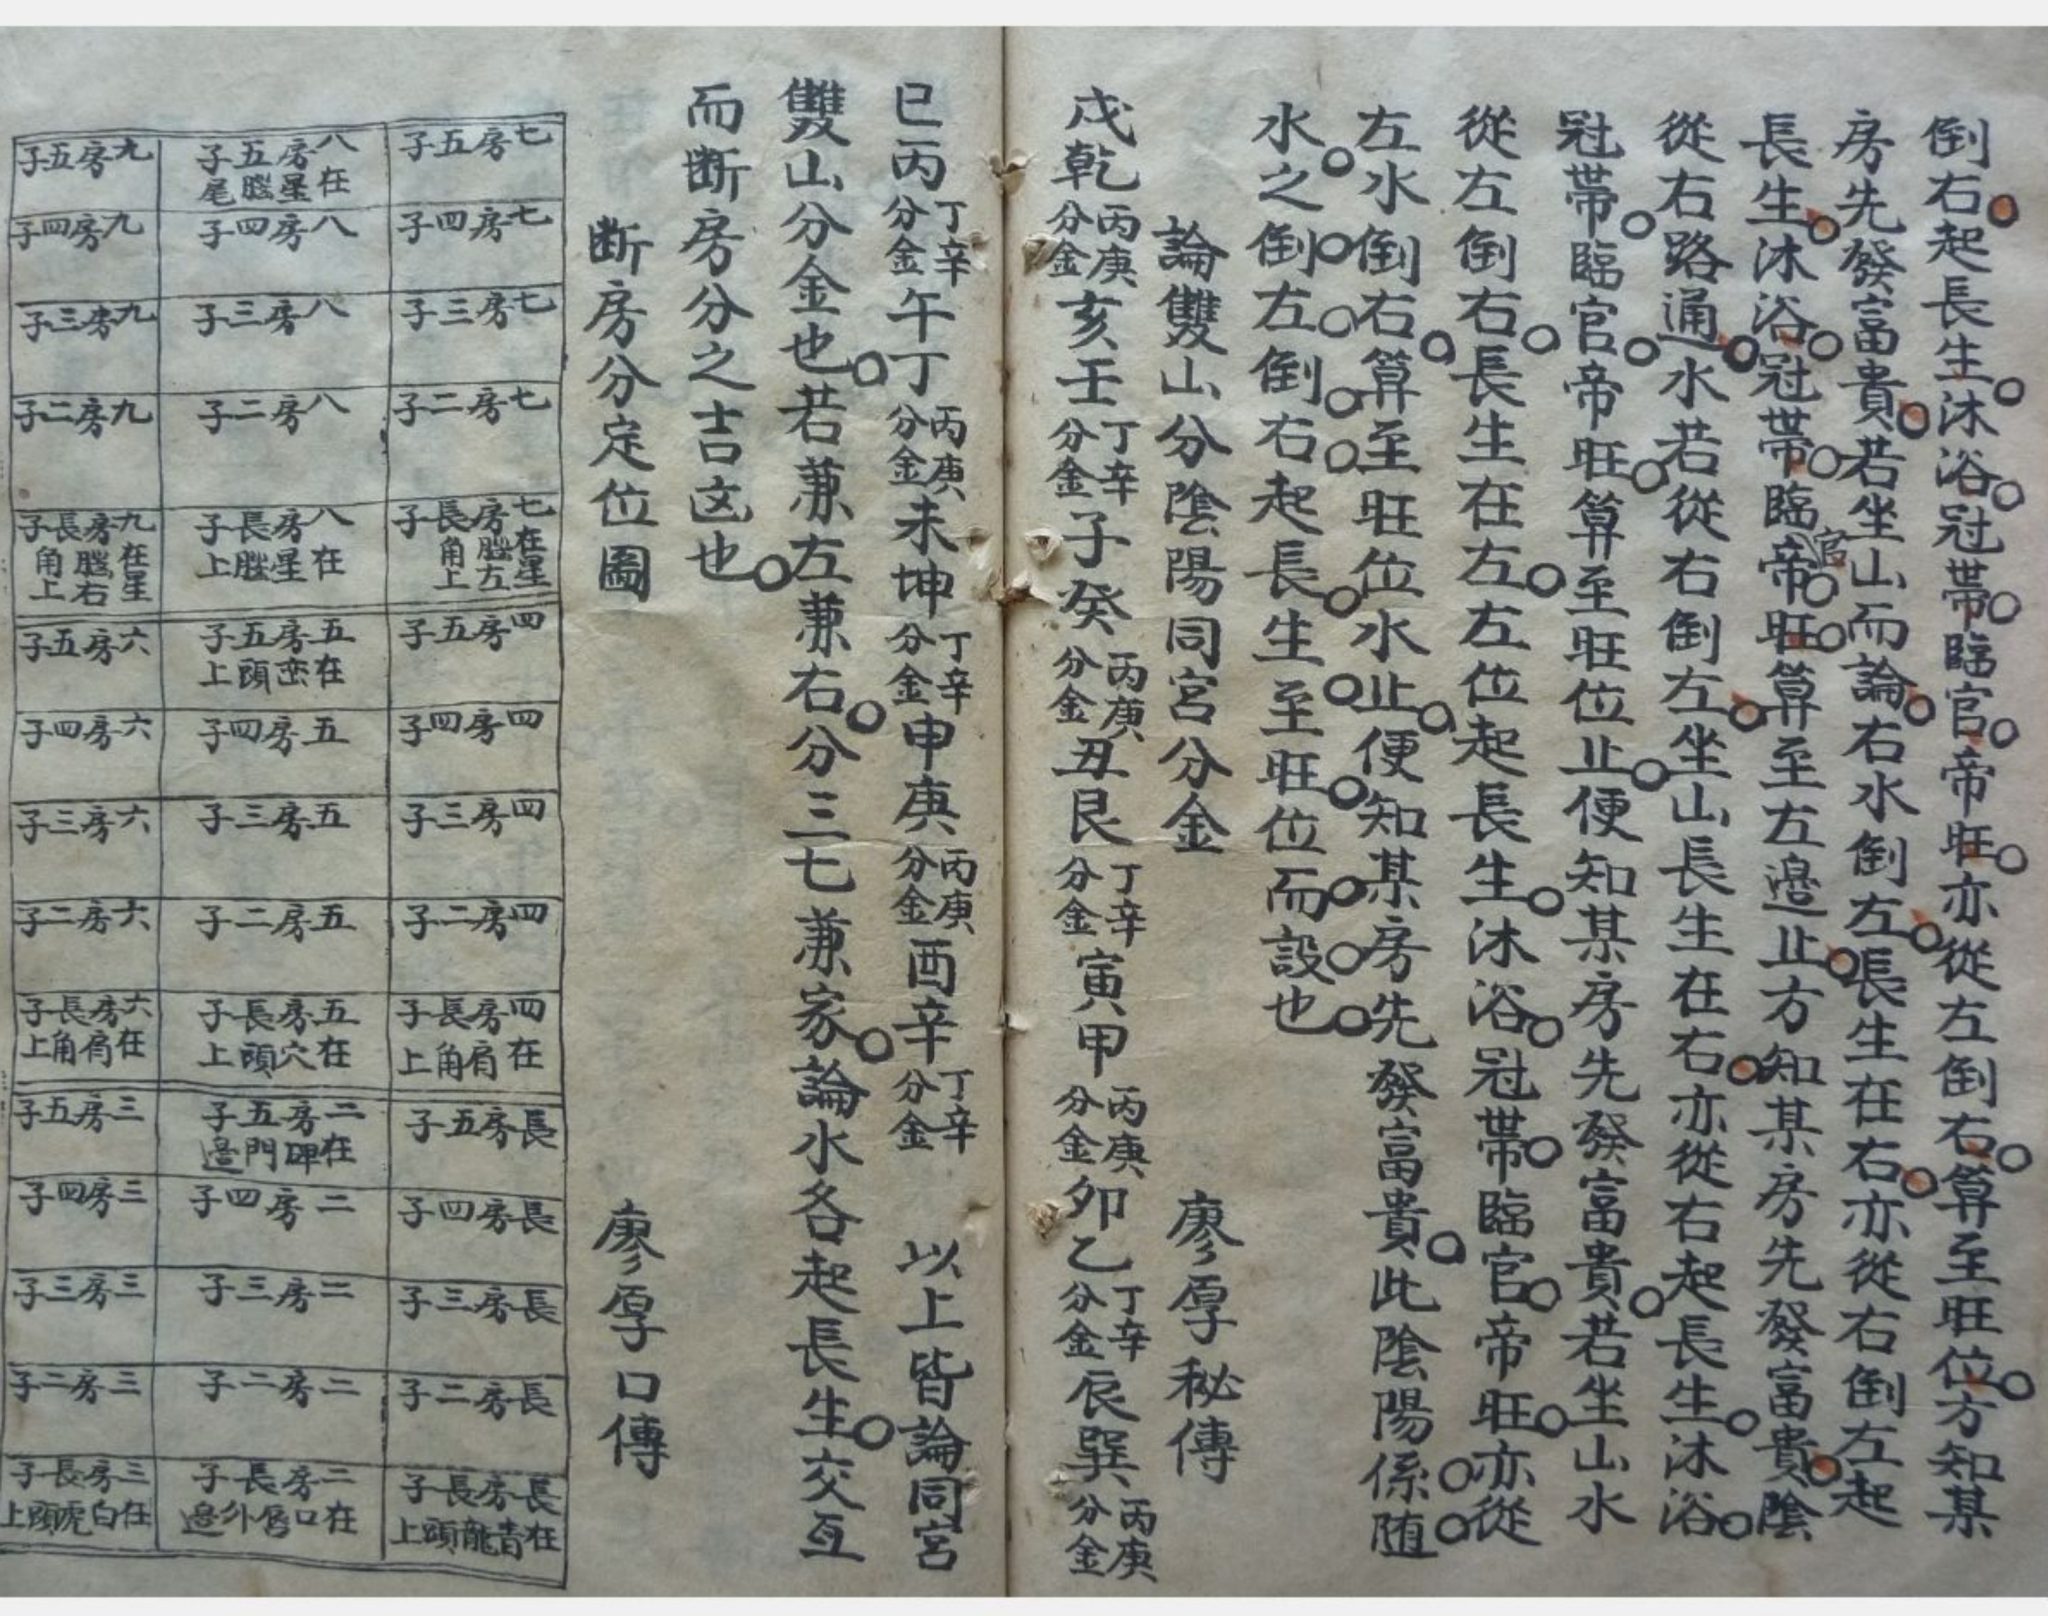 倒右起長生沐浴冠帶臨官帝旺亦從左倒右算至旺位方知某
房先發富貴若坐山而論右水倒左長生在右亦從右倒左起
長生沐浴冠帶臨官帝旺算至左邊止方知某房先發富貴陰
從右路通水若從右倒左坐山長生在右亦從右起長生沐浴
冠帶臨官帝旺算至旺位止便知某房先發富貴若坐山水
從左倒右長生在左左位起長生沐浴冠帶臨官帝旺亦從
左水倒右算至旺位水止便知某房先發富貴此陰陽係随
水之倒左倒右起長生至旺位而設也
論雙山分陰陽同宮分金 廖厚秘傳
戌乾丙庚分金亥壬丁辛分金子癸丙庚分金丑艮丁辛分金寅甲丙庚分金卯乙丁辛分金辰巽丙庚分金
巳丙丁辛分金午丁丙庚分金未坤丁辛分金申庚丙庚分金酉辛丁辛分金 以上皆論同宮
雙山分金也若兼左兼右分三七兼家論水各起長生交互
而断房分之吉凶也
断房分定位圖 廖厚口傳
七房五子
八房五子
在星腦尾
九房五子
七房四子
八房四子
九房四子
七房三子
八房三子
九房三子
七房二子
八房二子
九房二子
七房長子
在星腦左角上
八房長子
在星腦上
九房長子
在星腦右角上
四房五子
五房五子
在巒頭上
六房五子
四房四子
五房四子
六房四子
四房三子
五房三子
六房三子
四房二子
五房二子
六房二子
四房長子
在肩角上
五房長子
在穴頭上
六房長子
在肩角上
長房五子
二房五子
在碑門邊
三房五子
長房四子
二房四子
三房四子
長房三子
二房三子
三房三子
長房二子
二房二子
三房二子
長房長子
在青龍頭上
二房長子
在口唇外邊
三房長子
在白虎頭上